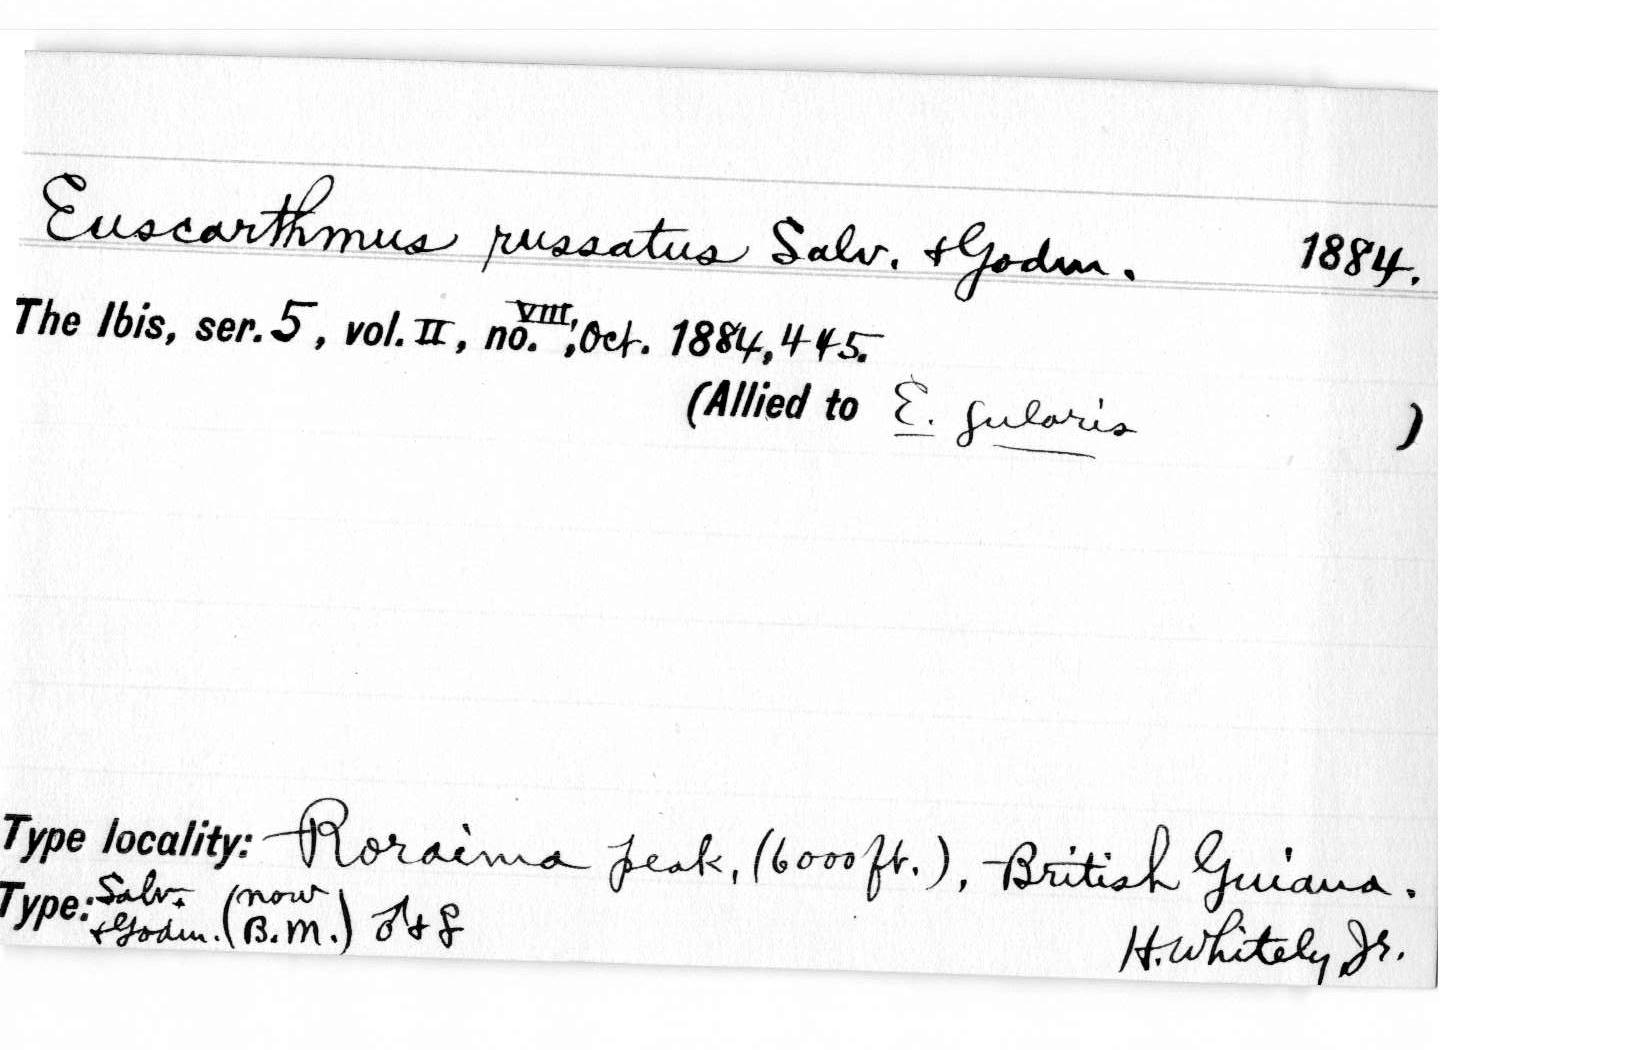 Euscarthmus russatus Salv. & Godm. 1884.
The Ibis, ser. 5, vol. II, no. VIII, Oct. 1884, 445.
(Allied to E. gularis )
Type locality: Roraima peak, (6000 ft.), British Guiana.
Type: Salv. & Godm. (now B.M.) ♂ & ♀
H. Whitely Jr.